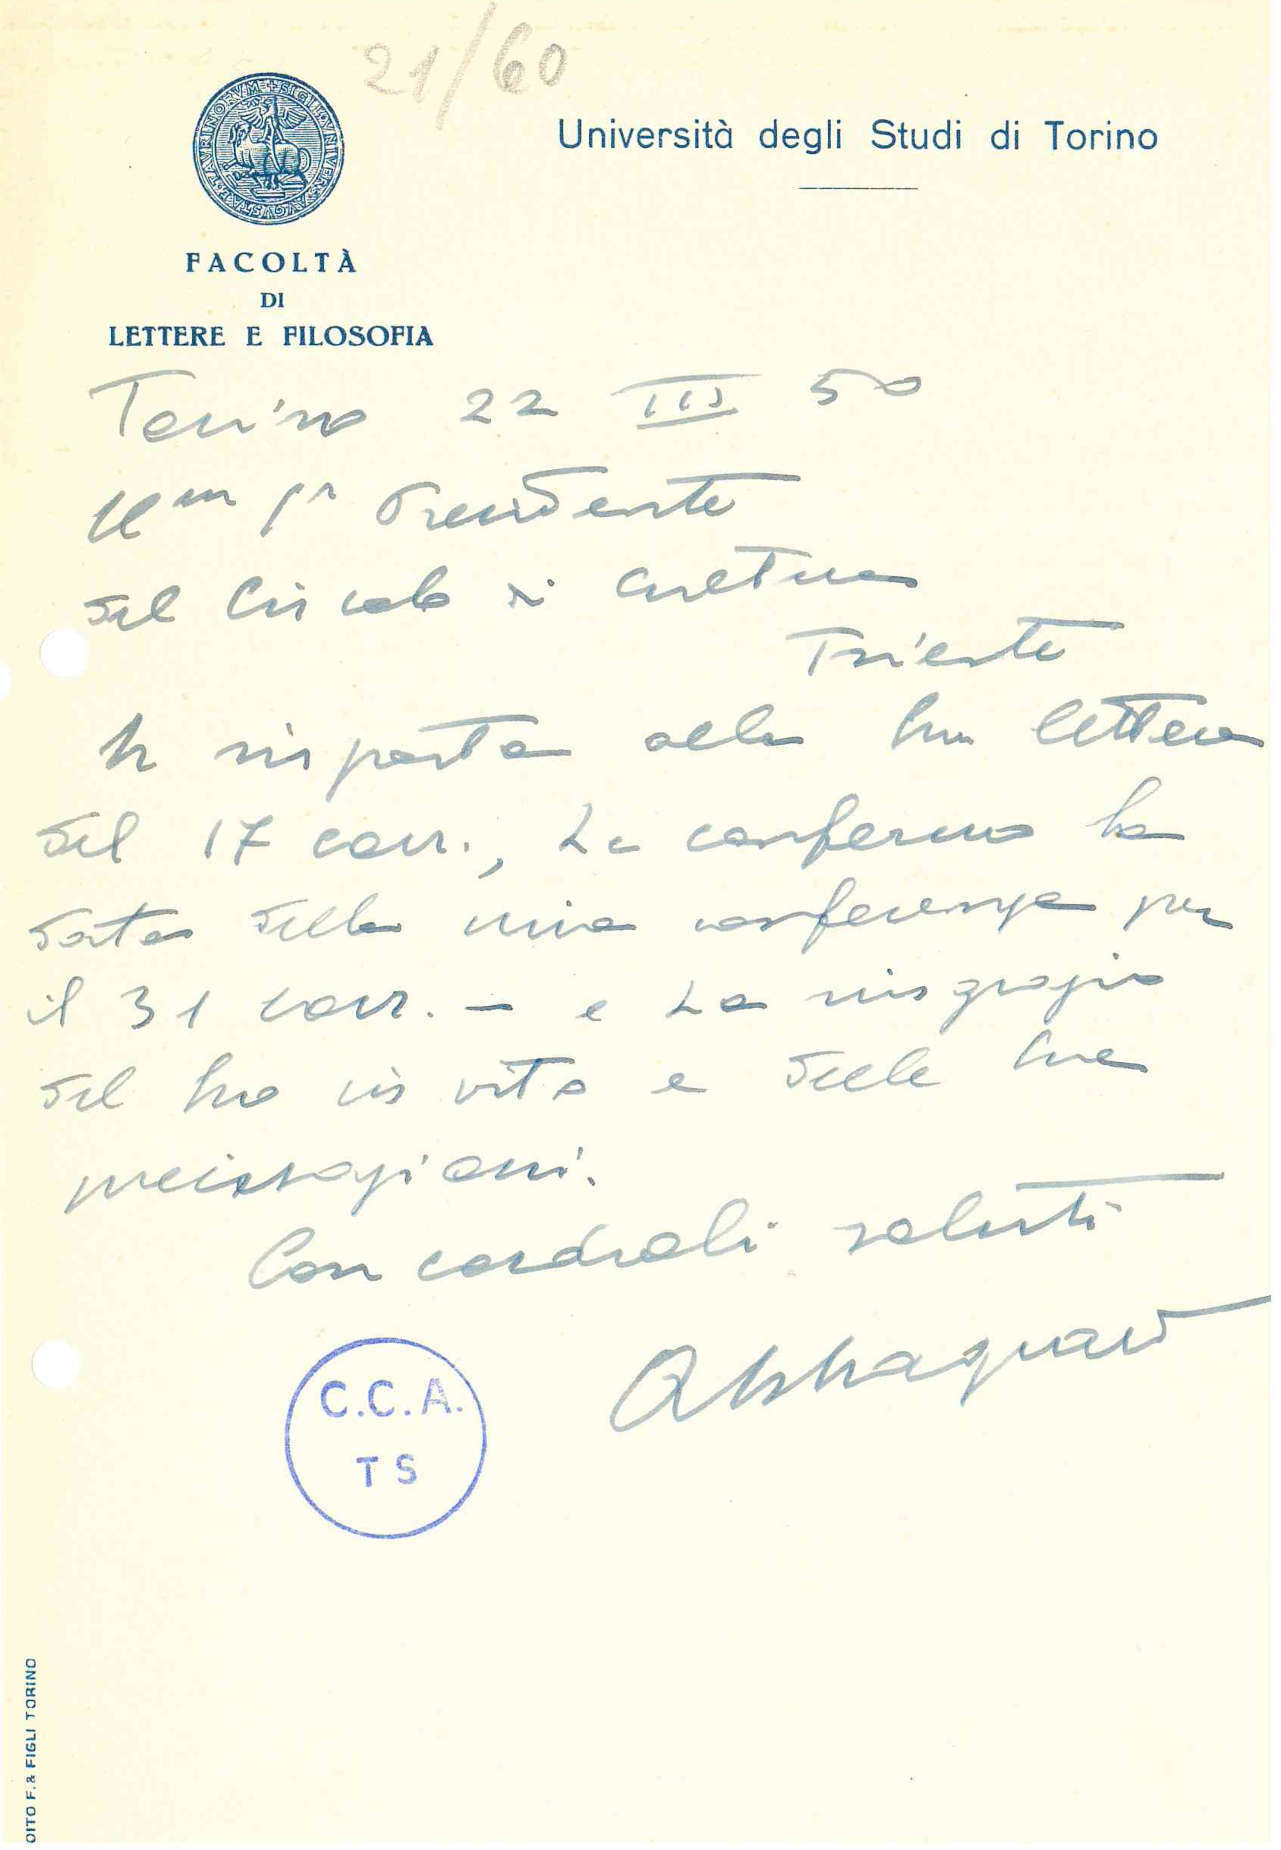 21/60
SIGILL·VNIVERS·AVGVSTAE·TAVRINORVM
Università degli Studi di Torino
FACOLTÀ
DI
LETTERE E FILOSOFIA
Torino 22 III 50
Ill.mo Sr Presidente
del Circolo di Cultura
Trieste
In risposta alla Sua lettera
del 17 corr., Le confermo la
data della mia conferenza per
il 31 corr. - e La ringrazio
del Suo invito e delle Sue
precisazioni.
Con cordiali saluti
Abbagnano
C.C.A.
TS
DITO F. & FIGLI TORINO